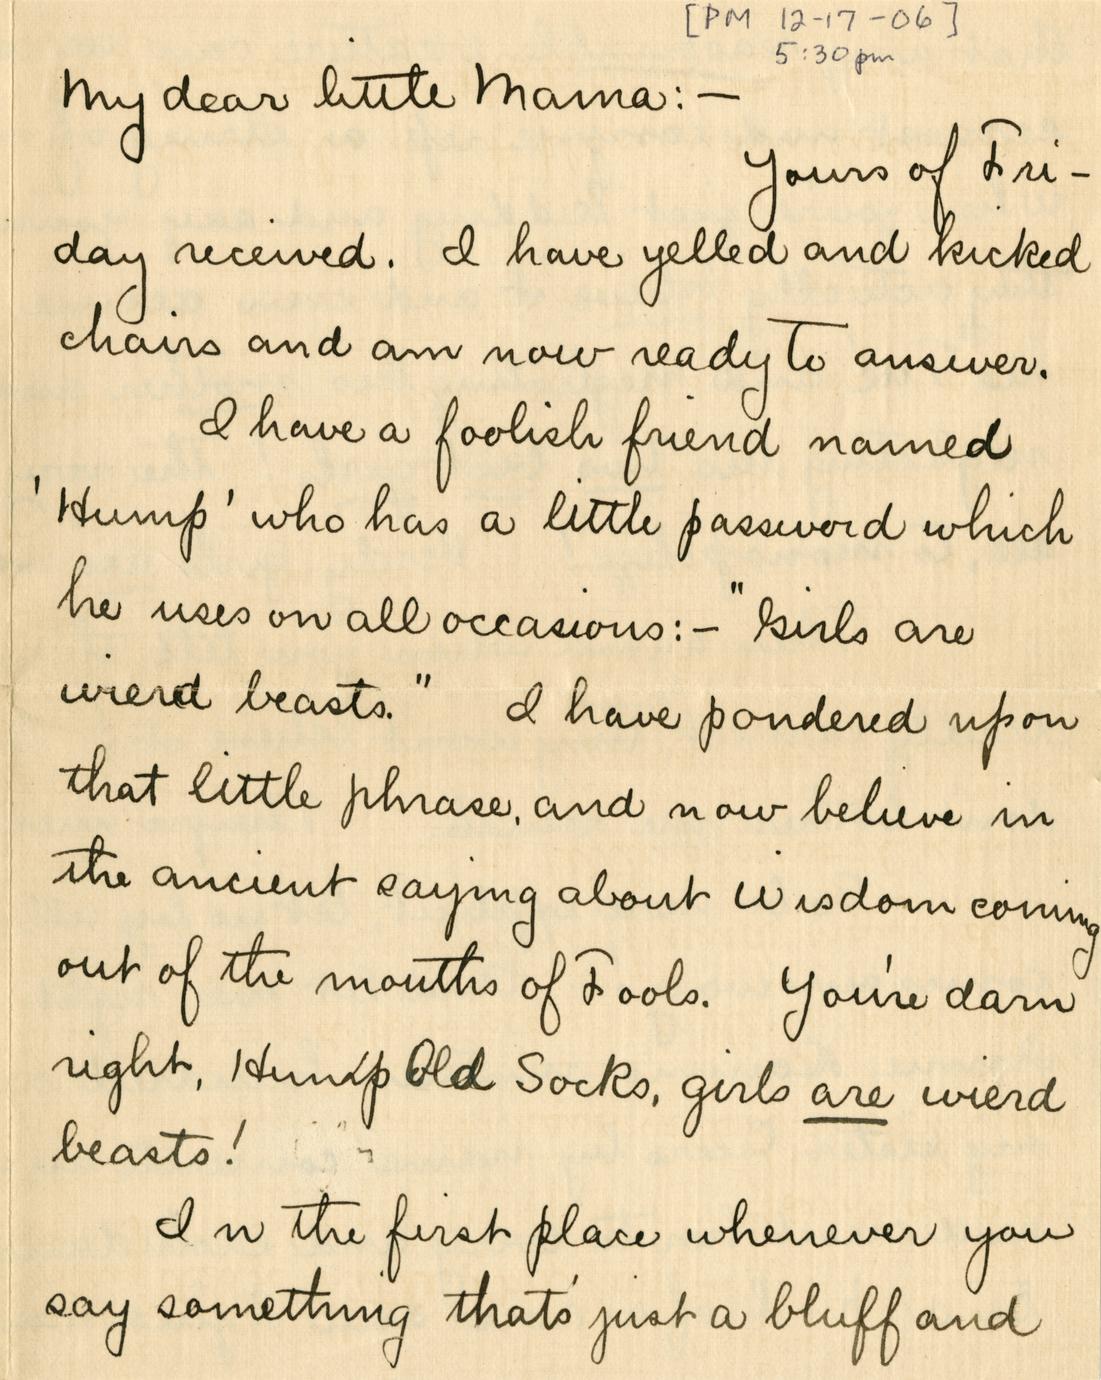 [PM 12-17-06]
5:30pm
My dear little Mama:—
Yours of Fri-
day received. I have yelled and kicked
chairs and am now ready to answer.
I have a foolish friend named
'Hump' who has a little password which
he uses on all occasions:— "Girls are
wierd beasts." I have pondered upon
that little phrase, and now believe in
the ancient saying about Wisdom coming
out of the mouths of Fools. You're darn
right, Hump Old Socks, girls are wierd
beasts!
In the first place whenever you
say something that's just a bluff and